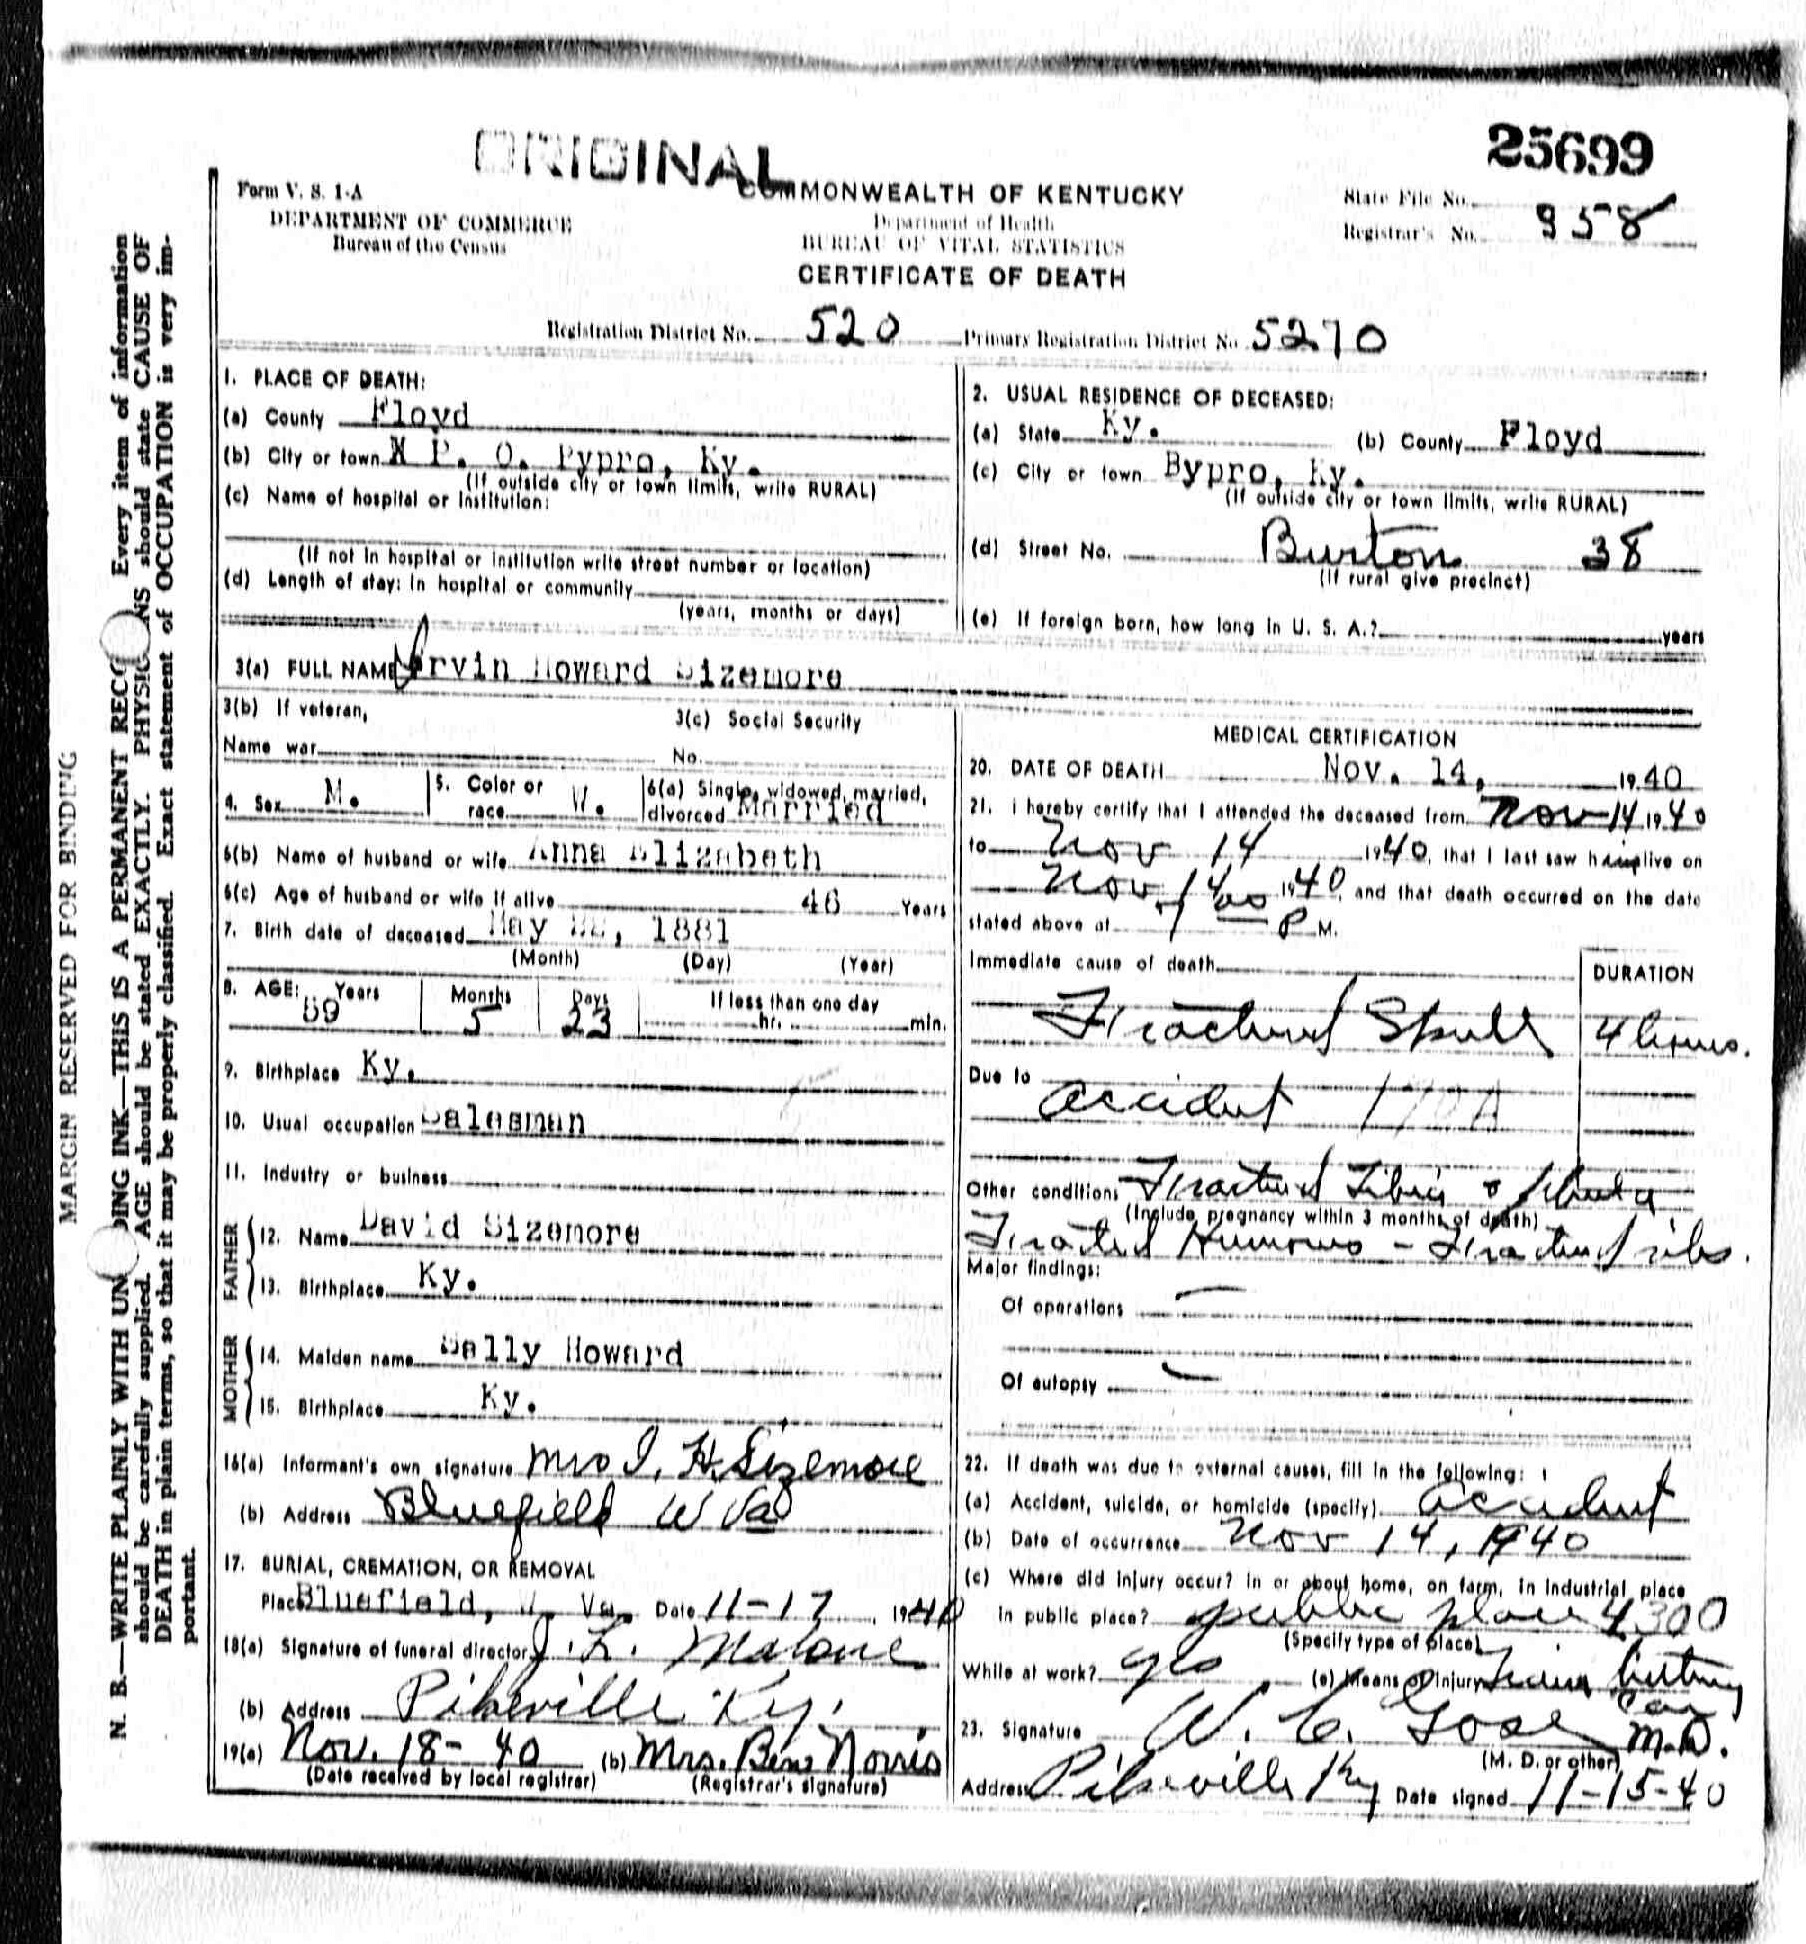 ORIGINAL
25699
Form V. S. 1-A
DEPARTMENT OF COMMERCE
Bureau of the Census
COMMONWEALTH OF KENTUCKY
Department of Health
BUREAU OF VITAL STATISTICS
CERTIFICATE OF DEATH
State File No.
Registrar's No. 958
Registration District No. 520 Primary Registration District No. 5270
MARGIN RESERVED FOR BINDING
N. B.—WRITE PLAINLY WITH UN DING INK—THIS IS A PERMANENT RECO Every item of information
should be carefully supplied. AGE should be stated EXACTLY. PHYSIC NS should state CAUSE OF
DEATH in plain terms, so that it may be properly classified. Exact statement of OCCUPATION is very im-
portant.
1. PLACE OF DEATH:
(a) County Floyd
(b) City or town X P. O. Bypro, Ky.
(If outside city or town limits, write RURAL)
(c) Name of hospital or Institution:
(If not in hospital or institution write street number or location)
(d) Length of stay: In hospital or community
(years, months or days)
2. USUAL RESIDENCE OF DECEASED:
(a) State Ky. (b) County Floyd
(c) City or town Bypro, Ky.
(If outside city or town limits, write RURAL)
(d) Street No. Burton 38
(If rural give precinct)
(e) If foreign born, how long in U. S. A.? years
3(a) FULL NAME Irvin Howard Sizemore
3(b) If veteran,
Name war
3(c) Social Security
No.
4. Sex M. 5. Color or race W. 6(a) Single, widowed, married, divorced Married
6(b) Name of husband or wife Anna Elizabeth
6(c) Age of husband or wife if alive 46 Years
7. Birth date of deceased May 22, 1881
(Month) (Day) (Year)
8. AGE: Years 59 Months 5 Days 23 If less than one day hr. min.
9. Birthplace Ky.
10. Usual occupation Salesman
11. Industry or business
FATHER
12. Name David Sizemore
13. Birthplace Ky.
MOTHER
14. Maiden name Sally Howard
15. Birthplace Ky.
16(a) Informant's own signature Mrs I. H. Sizemore
(b) Address Bluefield W Va
17. BURIAL, CREMATION, OR REMOVAL
Place Bluefield, W. Va. Date 11-17, 1940
18(a) Signature of funeral director J. L. Malone
(b) Address Pikeville Ky.
19(a) Nov. 18-40 (b) Mrs. Ben Norris
(Date received by local registrar) (Registrar's signature)
MEDICAL CERTIFICATION
20. DATE OF DEATH Nov. 14, 1940
21. I hereby certify that I attended the deceased from Nov 14 1940
to Nov 14 1940, that I last saw him alive on
Nov. 14 1940, and that death occurred on the date
stated above at P M.
Immediate cause of death
Fractured Skull
DURATION
4 hours.
Due to
accident 170A
Other conditions Fractured Tibia & fibula
(Include pregnancy within 3 months of death)
Fractured Humerus - Fractured ribs.
Major findings:
Of operations —
Of autopsy —
22. If death was due to external causes, fill in the following:
(a) Accident, suicide, or homicide (specify) accident
(b) Date of occurrence Nov 14, 1940
(c) Where did injury occur? In or about home, on farm, in industrial place
In public place? public place 4300
(Specify type of place)
While at work? yes (e) Means of injury Train hitting
car
23. Signature W. C. Gose M.D.
(M. D. or other)
Address Pikeville Ky Date signed 11-15-40